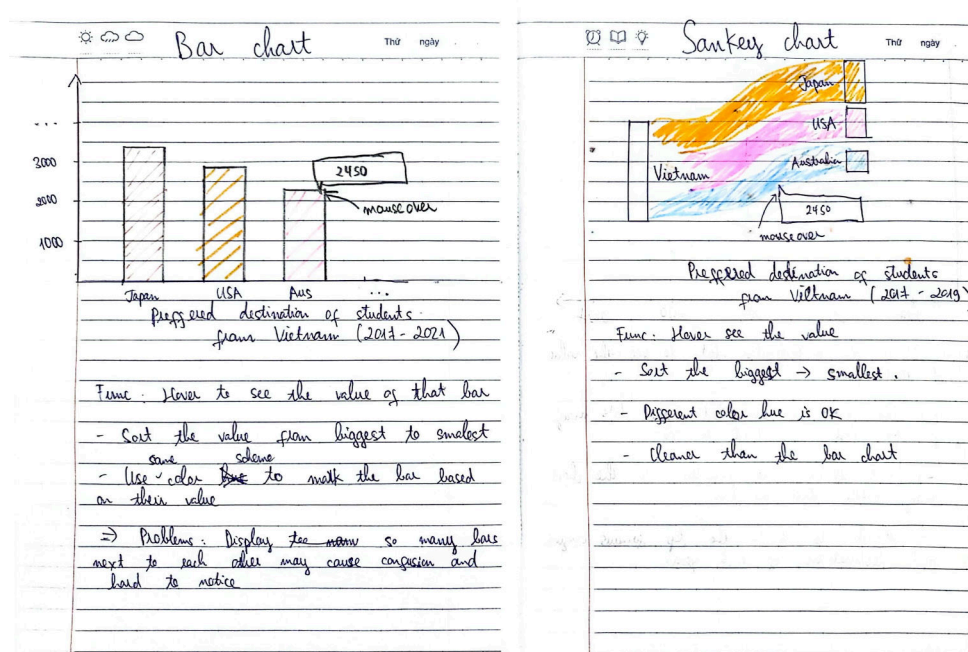 Bar chart
Thứ ngày
...
3000
2000
1000
2450
mouse over
Japan USA Aus ...
Preffered destination of students
from Vietnam (2017 - 2021)
Func: Hover to see the value of that bar
- Sort the value from biggest to smalest
same scheme
- Use color to mark the bar based
on their value
=> Problems: Display so many bars
next to each other may cause confusion and
hard to notice
Sankey chart
Thứ ngày
Japan
USA
Australia
Vietnam
2450
mouse over
Preffered destination of students
from Vietnam (2017 - 2019)
Func: Hover see the value
- Sort the biggest → smallest.
- Different color hue is OK
- Cleaner than the bar chart